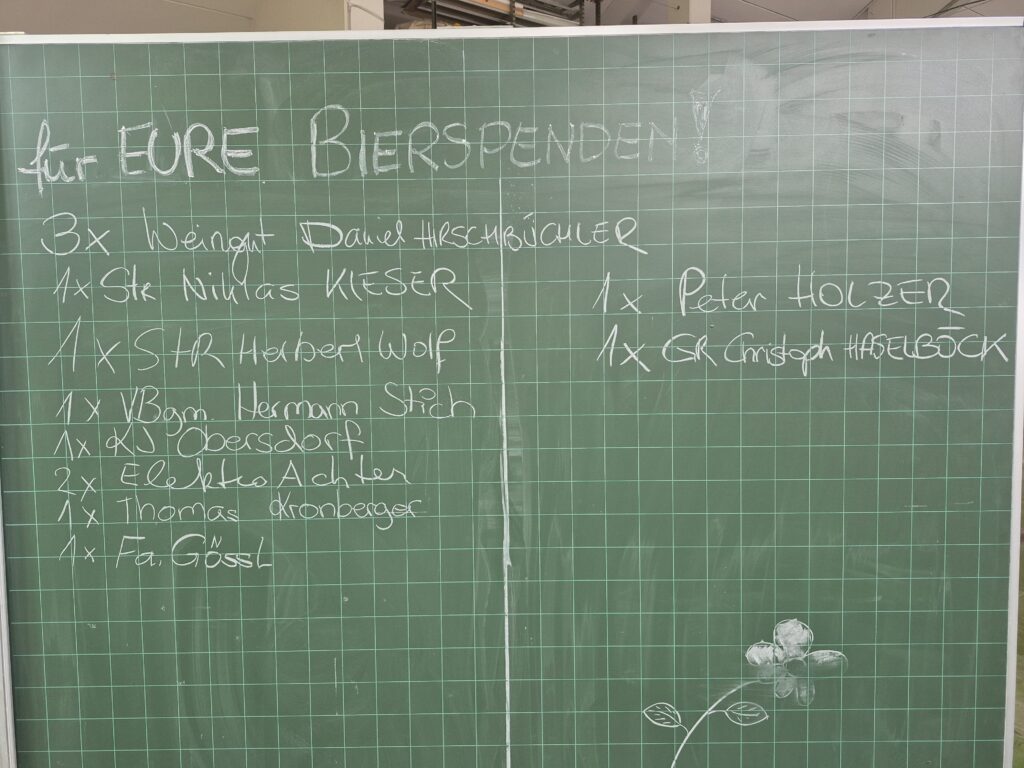 für EURE BIERSPENDEN!
3x Weingut Daniel HIRSCHBÜCHLER
1x Str Niklas KIESER
1x StR Herbert Wolf
1x VBgm. Hermann Stich
1x KJ Obersdorf
2x Elektro Achter
1x Thomas Kronberger
1x Fa. Gössl
1x Peter HOLZER
1x GR Christoph HASELBÖCK